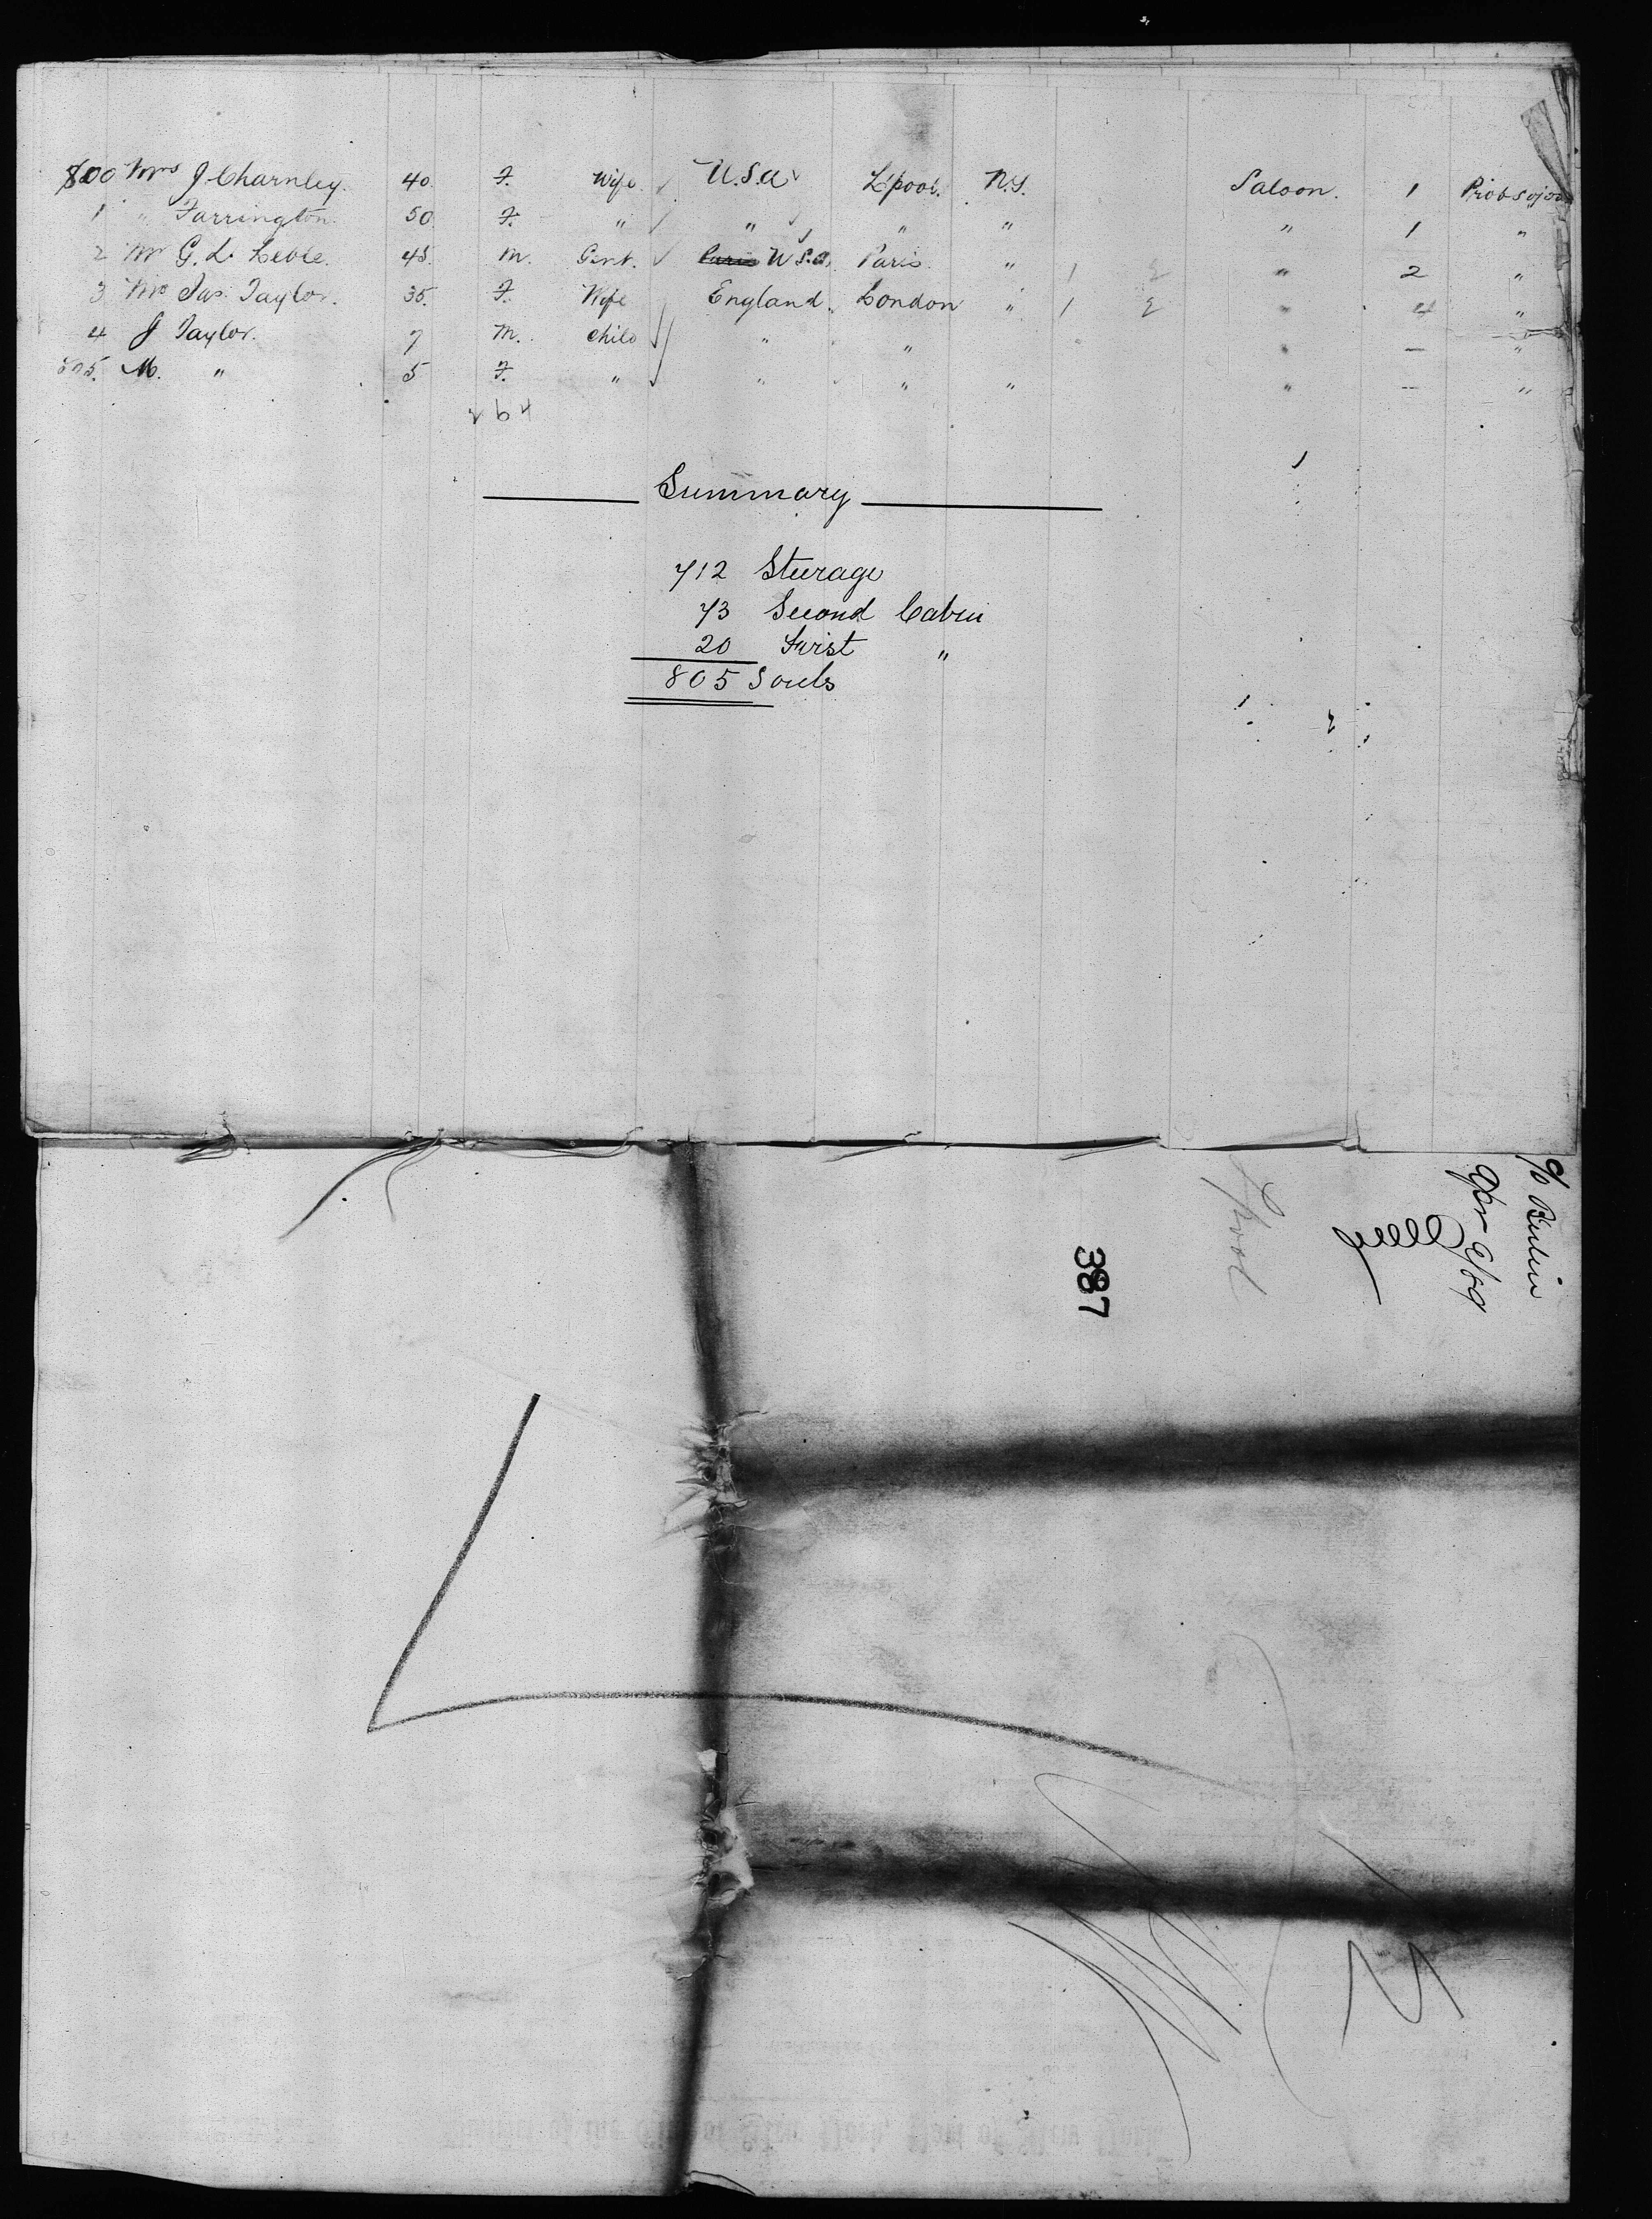 800 Mrs J. Charnley. 40 F. Wife. U.S.A L'pool. N.Y. Saloon. 1
1 " Farrington. 50 F. " " " " " 1 "
2 Mr G. L. 45. M. Gent. Paris U.S.A. Paris. " " 2 "
3 Mrs Jas. Taylor. 35. F. Wife England. London " " 4 "
4 J Taylor. 7 M. Child " " " — "
805. M. " 5 F. " " " " " — "
264
Summary
712 Steerage
73 Second Cabin
20 First "
805 Souls
c/o Berlin
L'pool
387